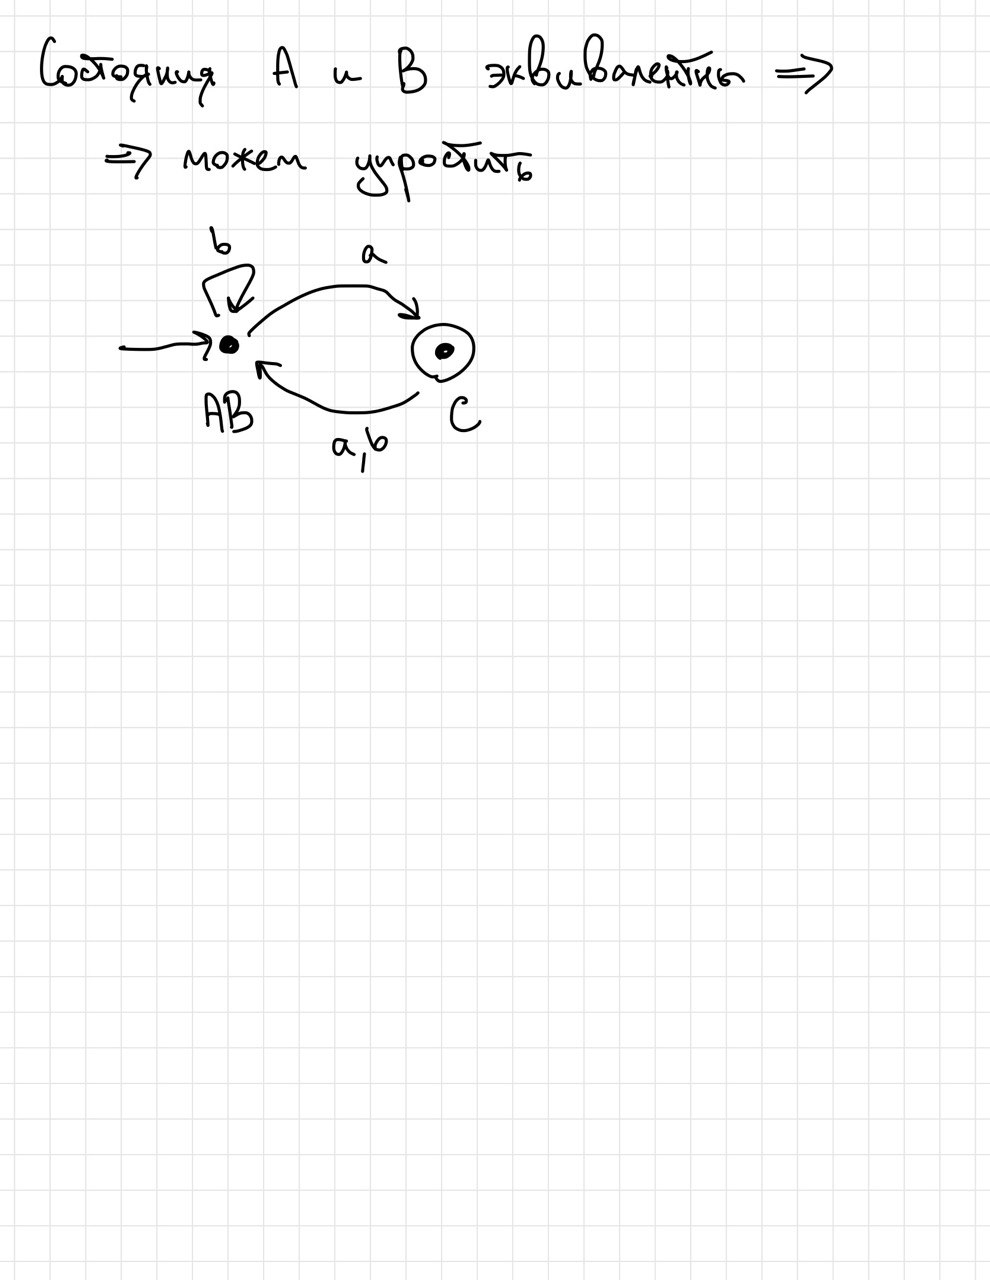 Состояния A и B эквивалентны =>
=> можем упростить
b
a
AB
C
a,b